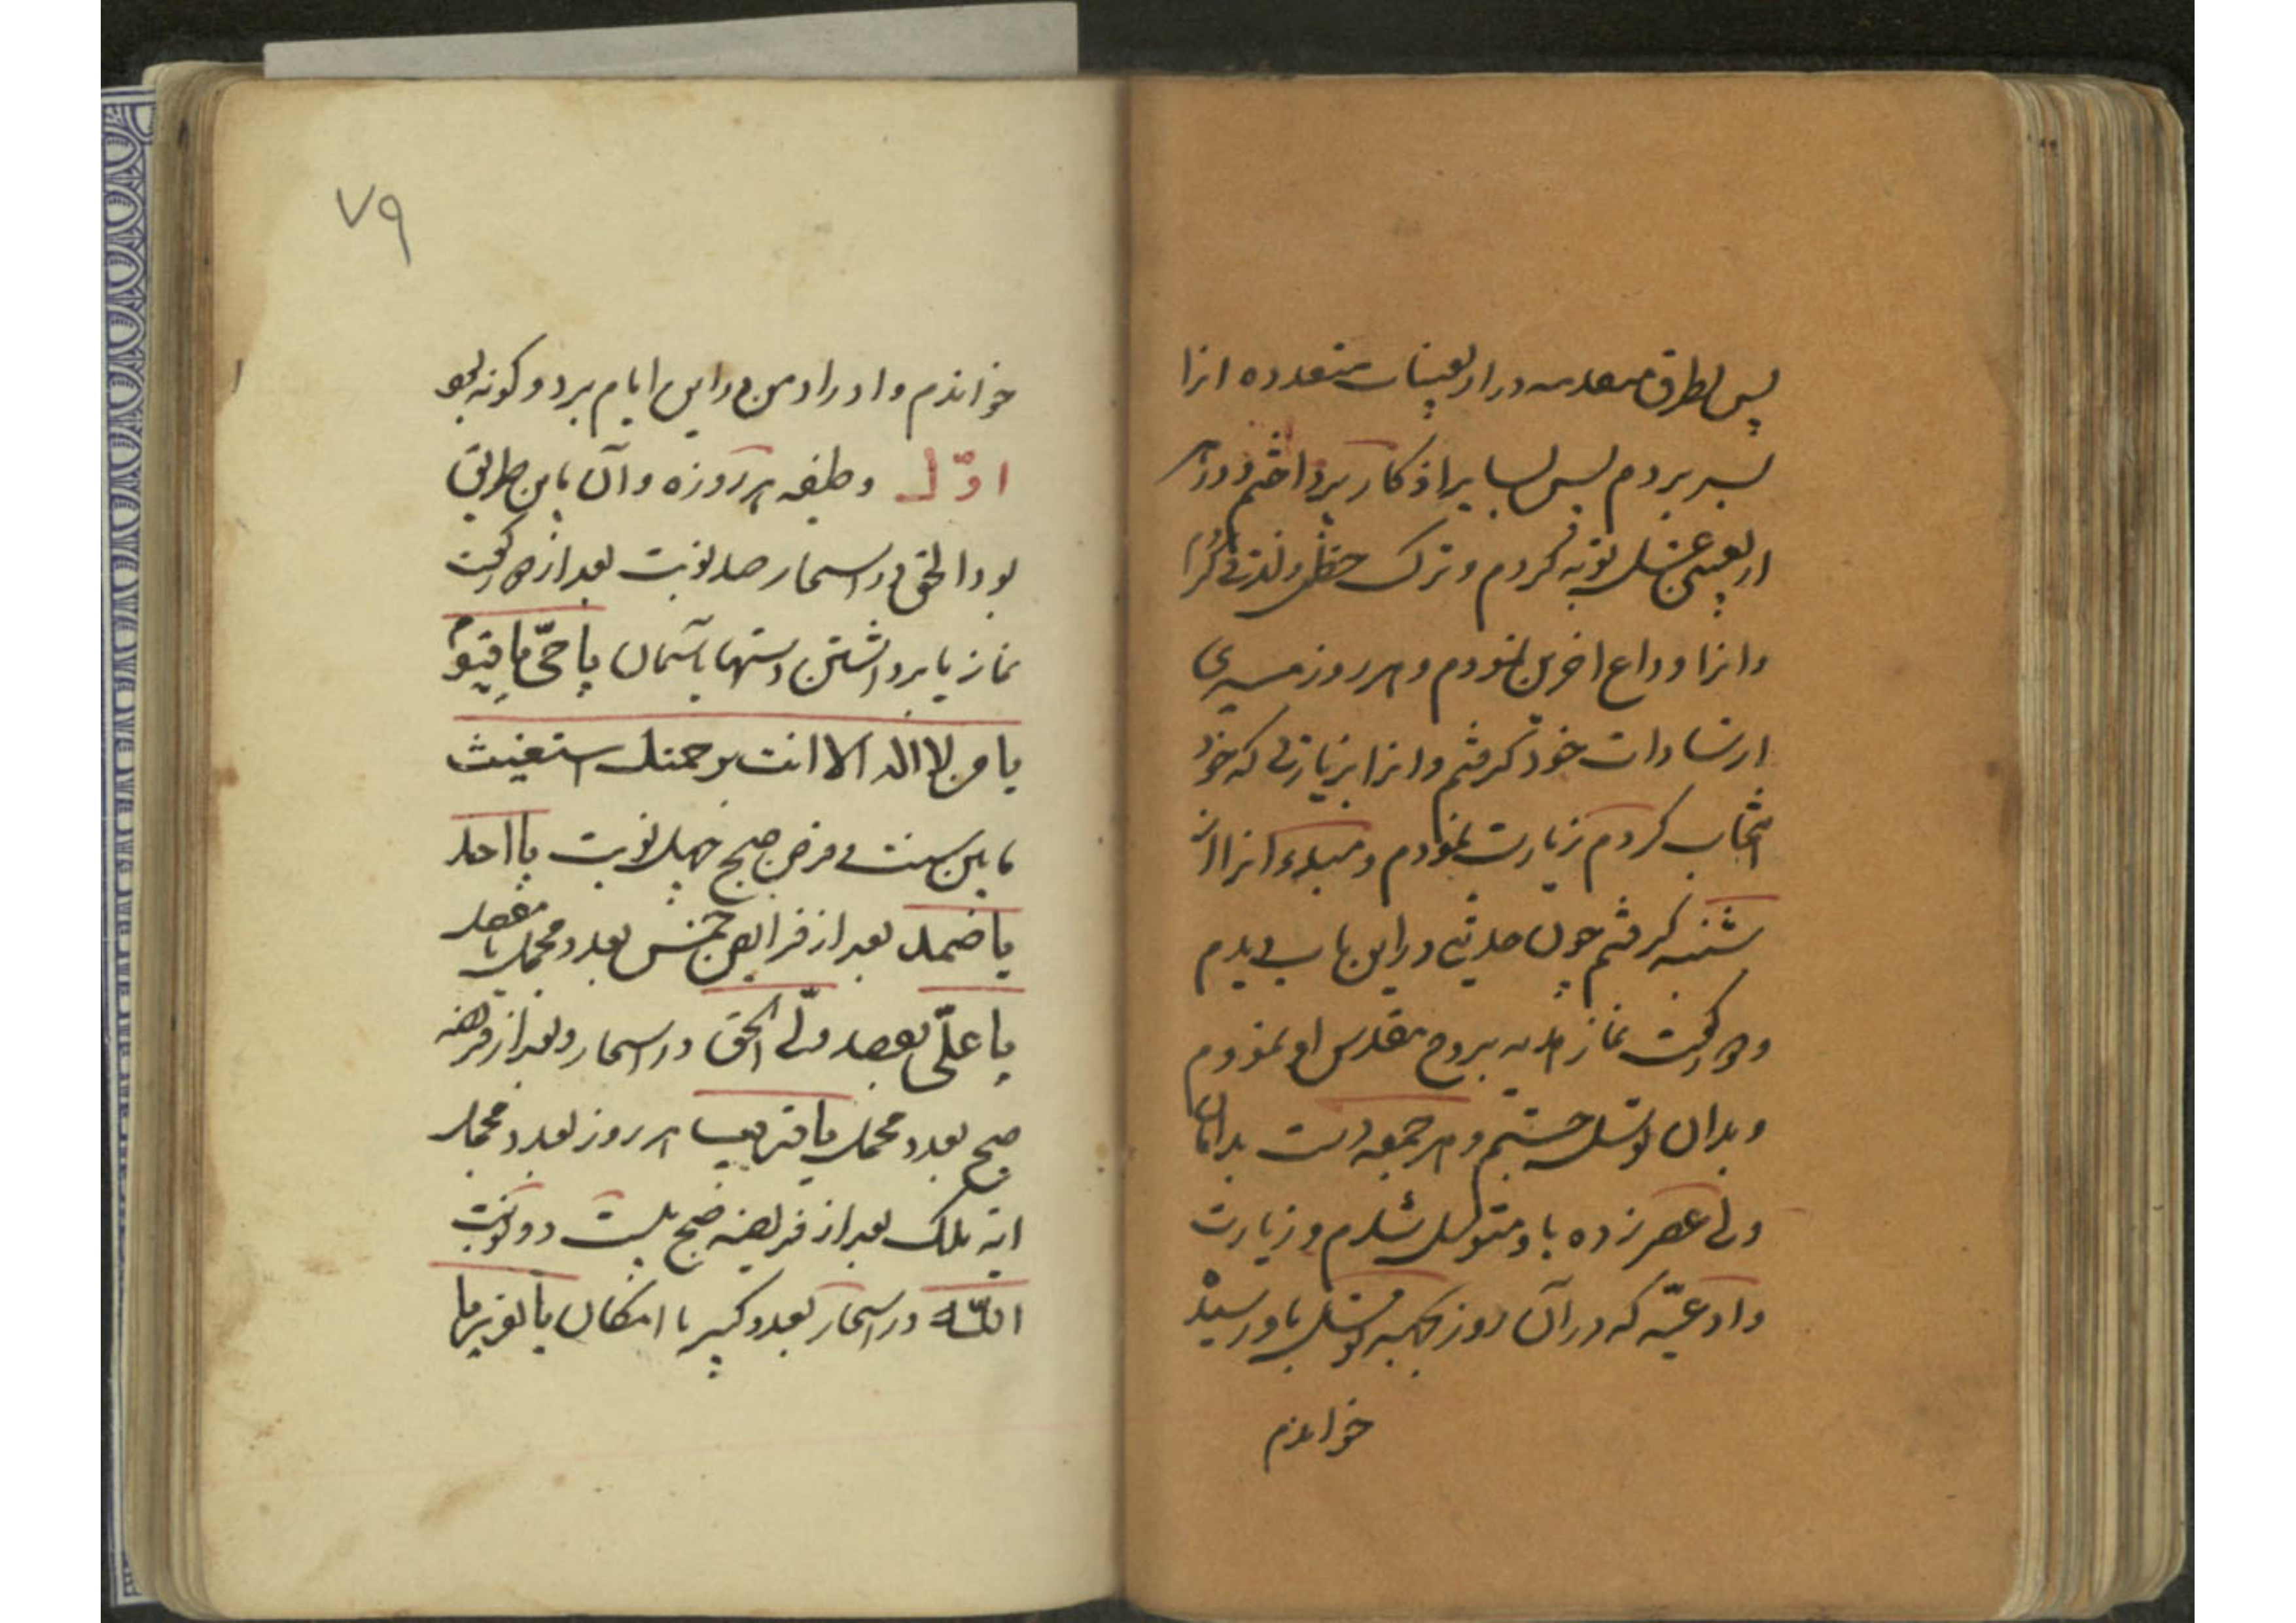 پس بطرق متعدده در اربعینات متعدده انرا
بسر بردم پس بسایر اذکار پرداختم و در هر
اربعینی غسل توبه کردم و ترک حظ و لذتی کرا
و انرا وداع اخرین نمودم و هر روز
ارشادات خود گرفتم و انرا بزیارتی که خود
انتخاب کردم زیارت نمودم و مبدء انرا از
شنبه گرفتم چون حدیثی در این باب دیدم
و دو رکعت نماز هدیه بروح مقدس او نمودم
و بدان توسل جستم و هر جمعه دست بدامان
ولی عصر زده باو متوسل شدم و زیارت
و ادعیّه که در آن روز بجهه توسل باو رسیده
خواندم
٧٩
خواندم و اوراد من در این ایام بر دو کونه بود
اوّل وظیفه هر روزه و آن باین طریق
بود الحق در اسحار صد نوبت بعد از دو رکعت
نماز با برداشتن دستها بآسمان یا حیّ یا قیّوم
یا من لا اله الا انت برحمتک استغیث
مابین سنت و فرض صبح چهل نوبت یا احد
یا صمد بعد از فرایض خمس بعدد مجمل یا مفصل
یا علّی بقصد ولّی الحق در اسحار و بعد از فریضه
صبح بعدد مجمل یا قریب هر روز بعدد مجمل
آیه ملک بعد از فریضه صبح بیست و دو نوبت
اللّه در اسحار بعدد کبیر با امکان یا نور یا